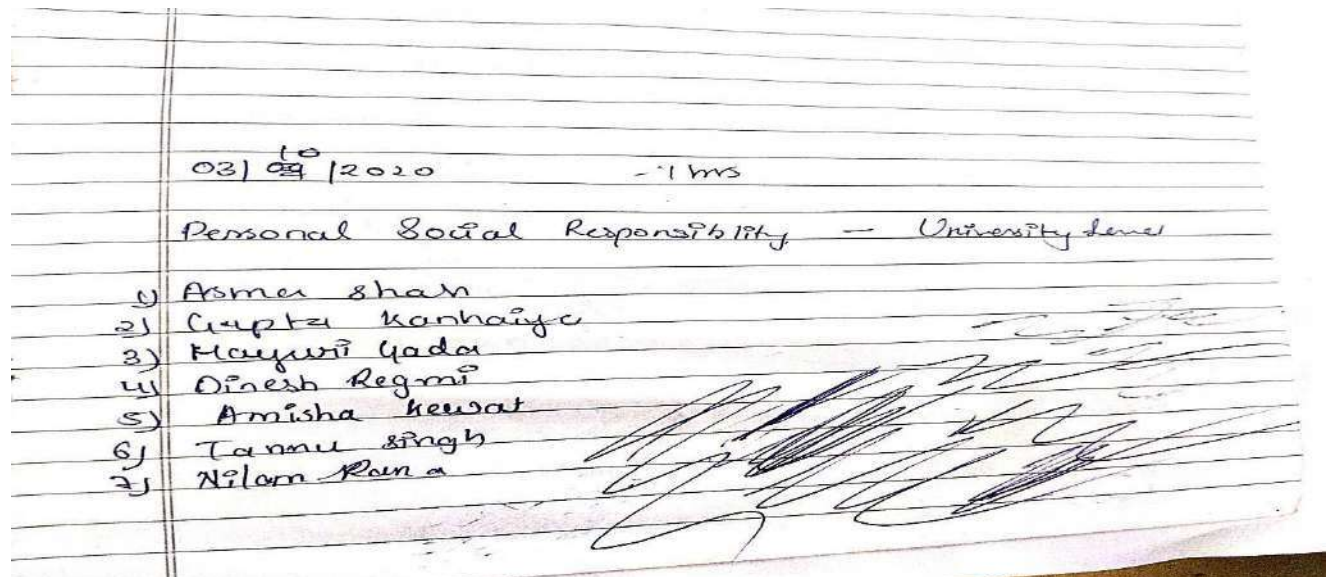 03/10/2020 - 1 hrs
Personal Social Responsiblity - University Level
1) Asma Shah
2) Gupta Kanhaiya
3) Mayuri Yadav
4) Dinesh Regmi
5) Amisha Kewat
6) Tannu Singh
7) Nilam Rana